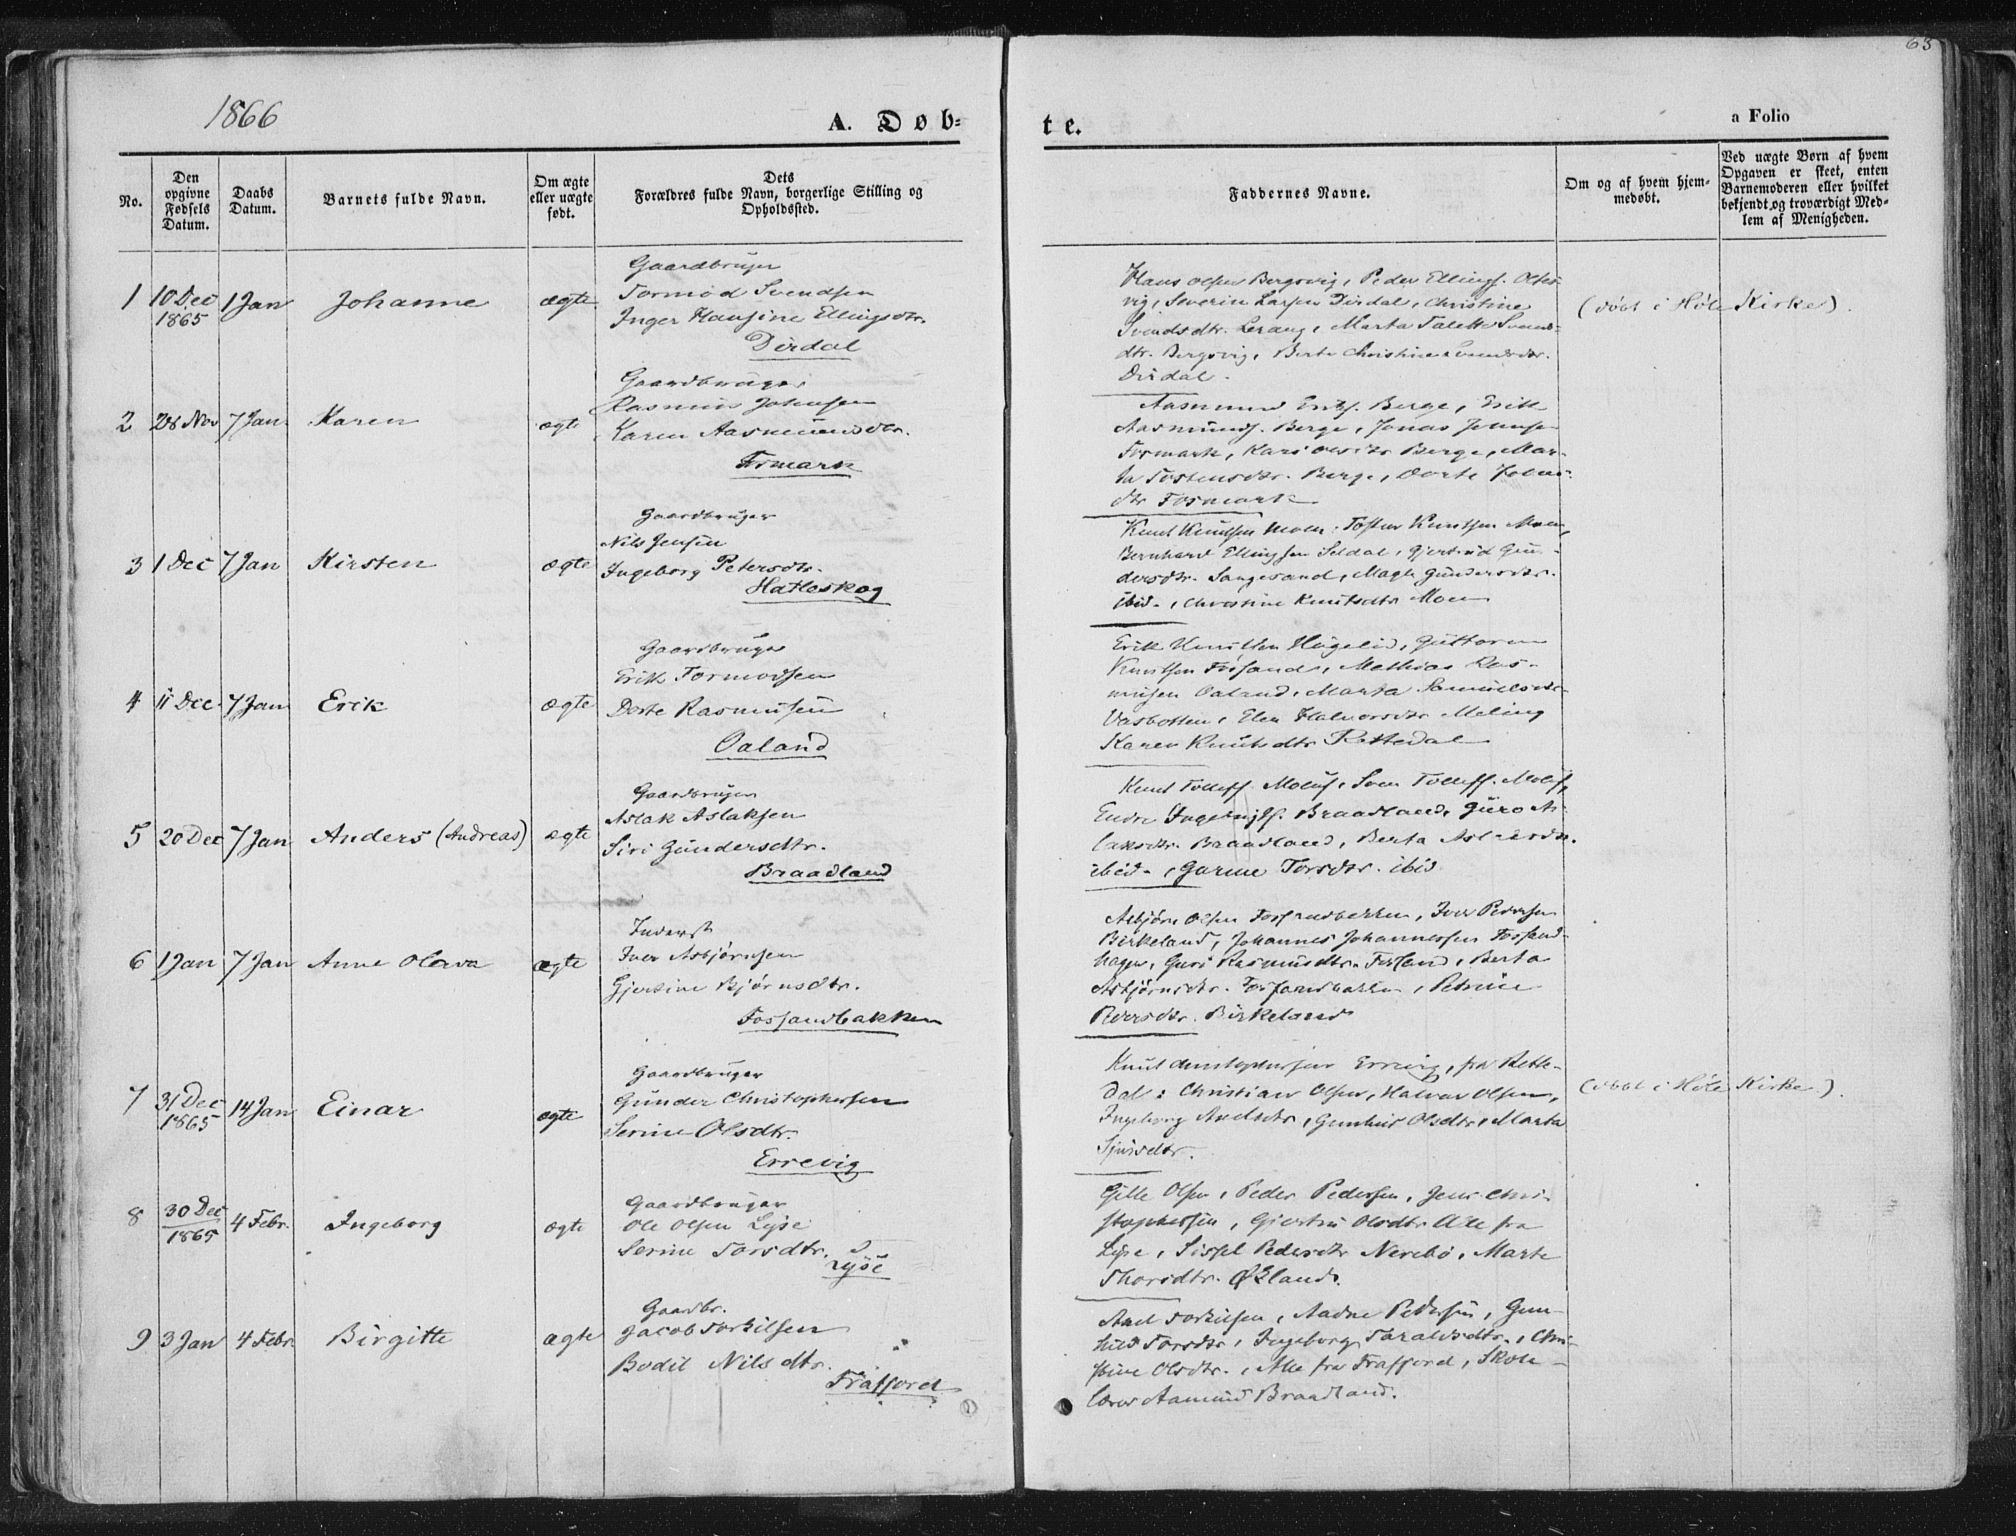 63
1866
A. Døb-
te.
a Folio
No.
Den opgivne Fødsels Datum.
Daabs Datum.
Barnets fulde Navn.
Om ægte eller uægte født.
Dets Forældres fulde Navn, borgerlige Stilling og Opholdssted.
Faddernes Navne.
Om og af hvem hjemmedøbt.
Ved uægte Børn af hvem Opgaven er skeet, enten Barnemoderen eller hvilket bekjendt og troværdigt Medlem af Menigheden.
1 10 Dec 1865 1 Jan Johanne ægte
Gaardbruger
Tormod Svendsen
Inger Hansine Ellingsdtr.
Dirdal
Hans Olsen Bergsvig, Peder Ellings. Olts-
vig, Severin Larsen Dirdal, Christine
Svendsdtr. Lerang, Marta Talette Svends-
dtr. Bergsvig, Berte Christine Svendsdtr.
Dirdal.
(døbt i Høle Kirke).
2 28 Nov 7 Jan Karen ægte
Gaardbruger
Rasmus Johnsen
Karen Aasmundsdtr.
Fosmark
Aasmund Eriks. Berge, Erik
Aasmunds. Berge, Jonas Johnsen
Fosmark, Kari Olsdtr Berge, Mar-
ta Tostensdtr. Berge, Dorte Johns-
dtr Fosmark
3 1 Dec 7 Jan Kirsten ægte
Gaardbruger
Nils Jensen
Ingeborg Petersdtr.
Hatleskog
Knut Knutsen Moen, Tosten Knutsen Moen,
Bernhard Ellingsen Seldal, Gjertrud Gun-
dersdtr. Songesand, Magla Gundersdtr.
ibid., Christine Knutsdtr Moen
4 11 Dec. 7 Jan Erik ægte
Gaardbruger
Erik Tormodsen
Dorte Rasmusen
Oaland
Erik Knutsen Høgelid, Guttorm
Knutsen Fosand, Mathias Ras-
musen Oaland, Marta Samuelsdtr
Vasbotten, Elen Halvorsdtr Meling
Karen Knutsdtr Rettedal
5 20 Dec 7 Jan Anders (Andreas) ægte
Gaardbruger
Aslak Aslaksen
Siri Gundersdtr.
Braadland
Knut Tollefs. Molaug, Sven Tollefs.
Endre Ingebrigts. Braadland, Guro As-
laksdtr. Braadland, Berta Aslaksdtr.
ibid., Gurine Torsdtr. ibid
6 1 Jan 7 Jan Anne Oleva ægte
Inderst
Iver Asbjørnsen
Gjertine Bjørnsdtr.
Fossandbakken
Asbjørn Olsen Fossandbakken, Iver Pedersen
Birkeland, Johannes Johannessen Fossand-
hagen, Guri Rasmusdtr. Fossand, Berta
Asbjørnsdtr. Fossandbakken, Petrine
Pedersdtr. Birkeland
7 31 Dec 1865 14 Jan Einar ægte
Gaardbruger
Gunder Christophersen
Serine Olsdtr.
Errevig
Knut Christophersen Errevig, fra Rette-
dal: Christian Olsen, Halvor Olsen,
Ingeborg Axelsdtr, Gunhild Olsdtr, Marta
Sjursdtr.
(døbt i Høle Kirke).
8 30 Dec 1865 4 Febr. Ingeborg ægte
Gaardbruger
Ole Olsen Lyse
Serine Torsdtr.
Lyse
Gitle Olsen, Peder Pedersen, Jens Chri-
stophersen, Gjertru Olsdtr Alle fra
Lyse, Sissel Pedersdtr Nerebø, Marte
Thorsdtr. Øklands.
9 3 Jan 4 Febr. Birgitte ægte
Gaardbr.
Jacob Torkilsen
Bodil Nilsdtr.
Frafjord
Axel Torkilsen, Aadne Pedersen, Gun-
hild Torsdtr, Ingeborg Taraldsdtr., Chri-
stine Olsdtr., Alle fra Frafjord, Skole-
lærer Aamund Braadland.